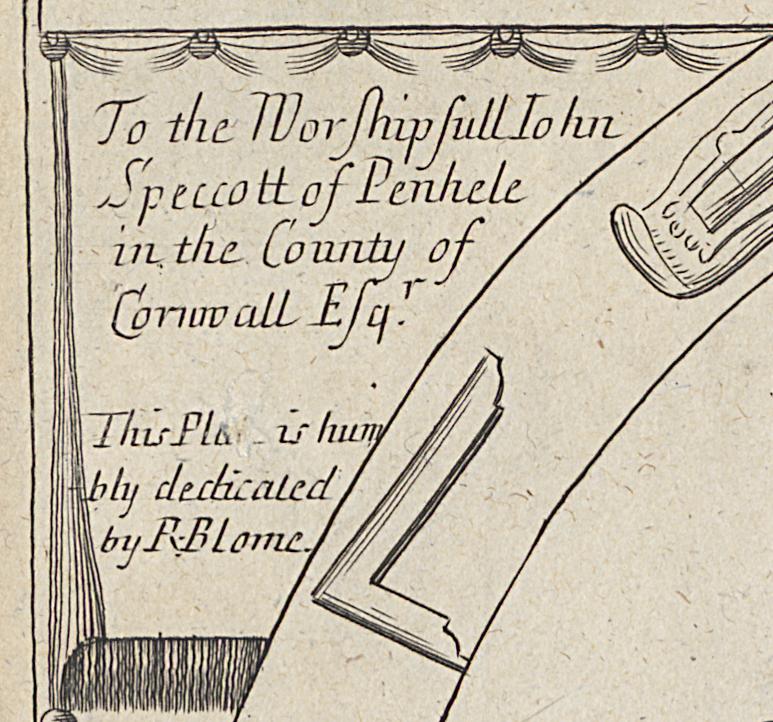 To the Worſhipfull Iohn
Speccott of Penhele
in the County of
Cornwall Eſqr.
This is hum
bly dedicated
by R. Blome.